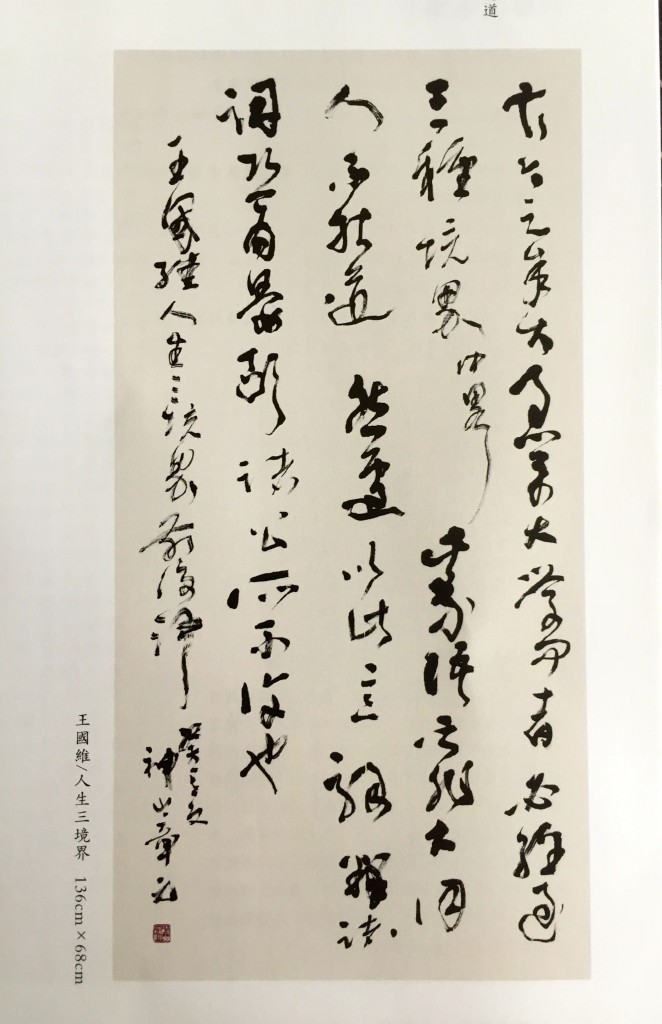 道
古今之成大事業大學問者必經過
三種境界 此等語皆非大詞
人不能道 然遽以此意解釋諸
詞恐為晏歐諸公所不許也
王國維人生三境界
王國維/人生三境界 136cm×68cm